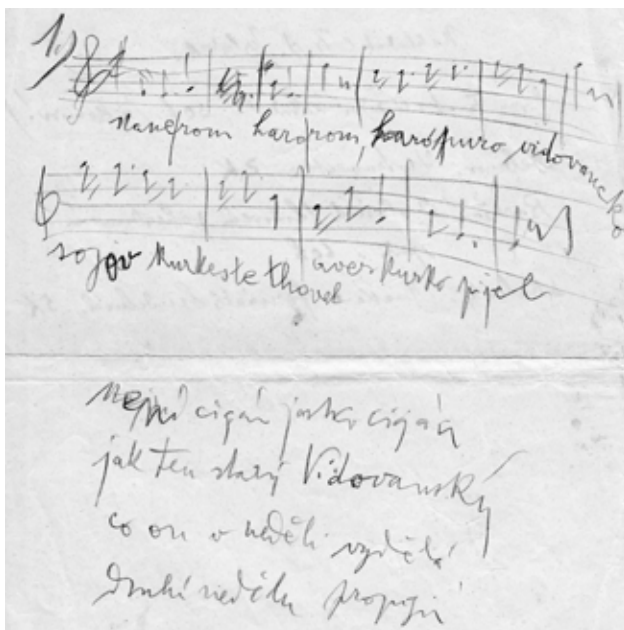 1.)
nanerom harorom, haro puro vidovancko
sojov kurkeste thovel aver kurko pijel
není cigán jasko cigán
jak ten starý Vidovanský
co on v neděli vydělá
druhí neděli propijí